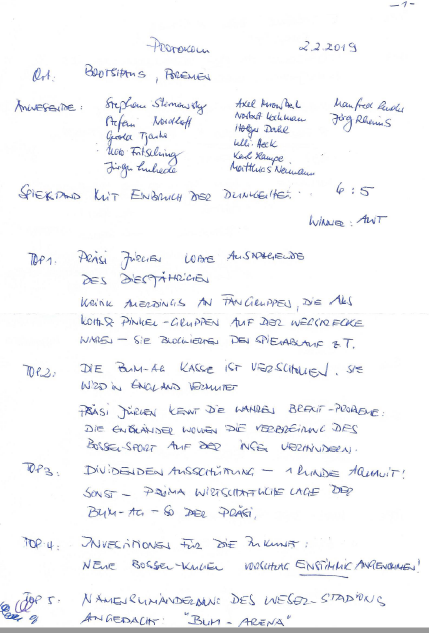 - 1 -
Protokoll 2.2.2019
Ort: Bootshaus, Bremen
Anwesende: Stephan Axel Manfred
Stefan Nordhoff Norbert Jörg
Holger Dahl
Uwe Fritsching Ulli
Jürgen Karl Hampe
Matthias Neumann
Spielstand mit Einbruch der Dunkelheit: 4 : 5
Winner: AWT
TOP 1: Präsi Jürgen lobte
des diesjährigen
Kritik allerdings an Fangruppen, die als
Kohl & Pinkel-Gruppen auf der Wegstrecke
waren - sie blockierten den Spielablauf z.T.
TOP 2: Die BUM-AG Kasse ist verschwunden. Sie
wird in England vermutet
Präsi Jürgen kennt die wahren Brexit-Probleme:
Die Engländer wollen die Verbreitung des
Bossel-Sport auf der Insel verhindern.
TOP 3: Dividenden Ausschüttung - 1 Runde Aquavit!
Sonst - prima wirtschaftliche Lage der
BUM-AG - so der Präsi.
TOP 4: Investitionen für die Zukunft:
Neue Bossel-Kugeln Vorschlag einstimmig angenommen!
TOP 5: Namensumänderung des Weser-Stadions
angedacht: "BUM-Arena"